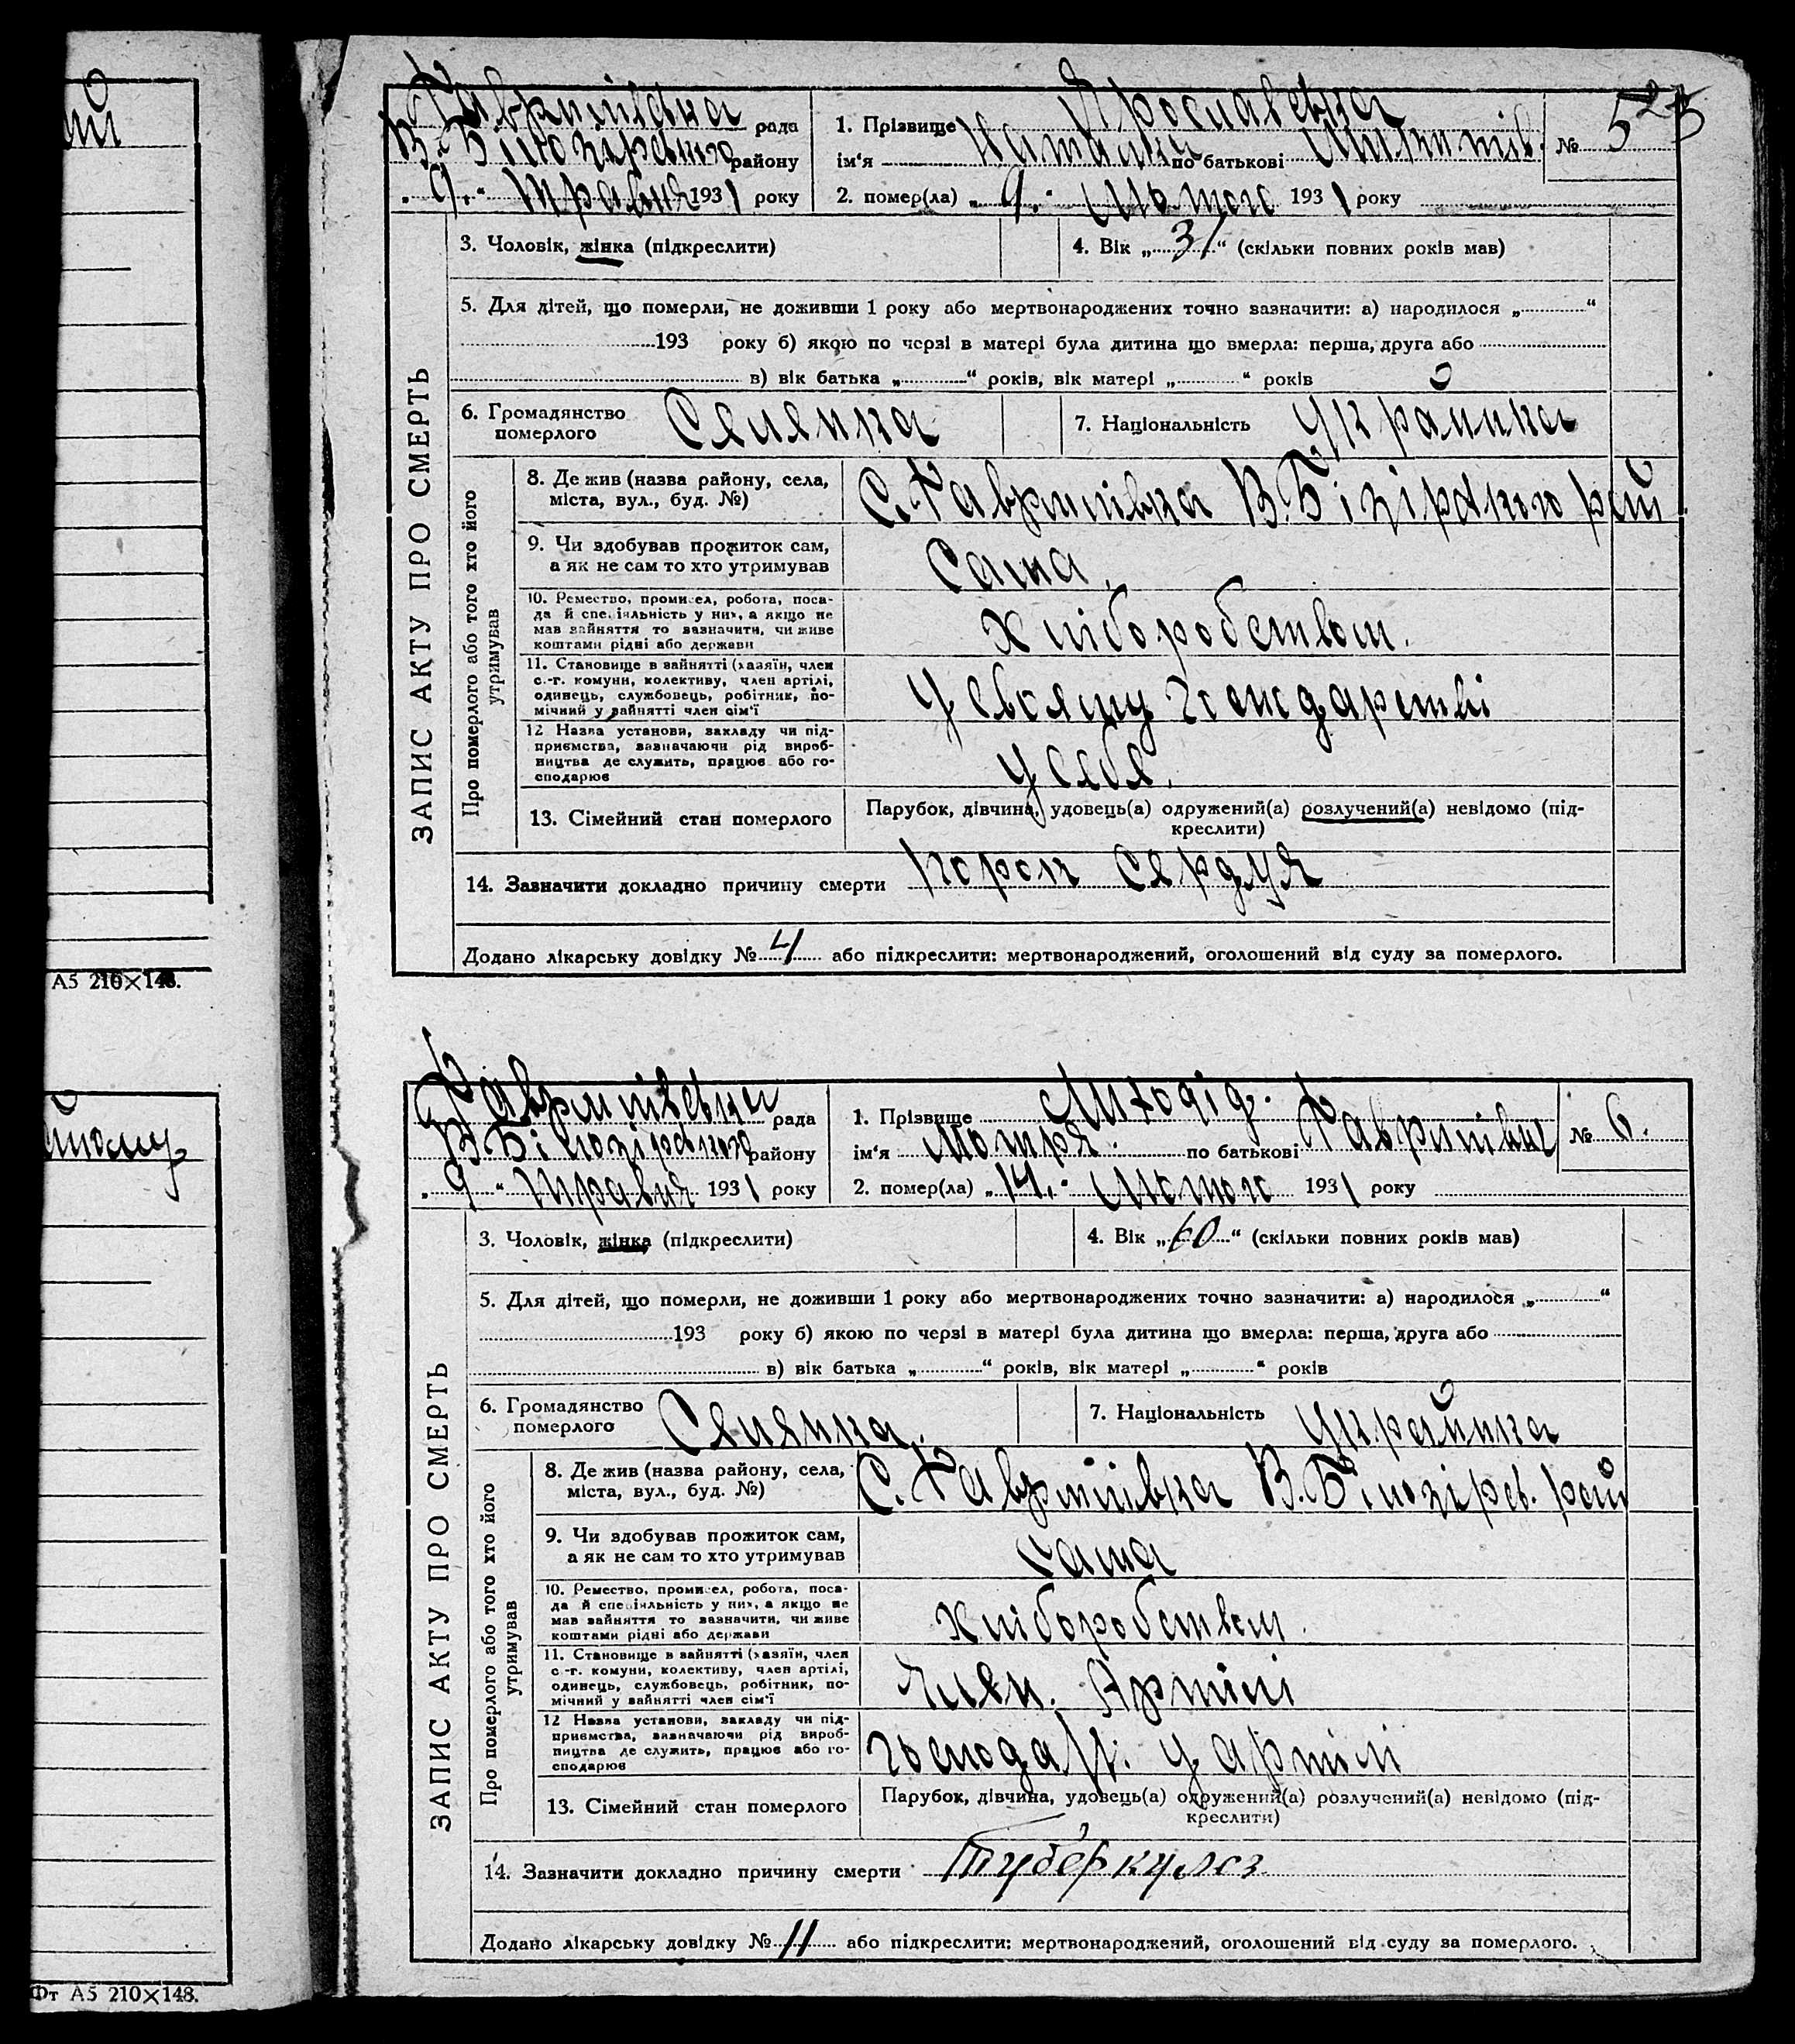 ий
А5 210×148.
Фт А5 210×148.
Гаврилівська рада
В-Білозірського району
„ 9. “ Травня 1931 року
1. Прізвище Ярославська
ім‘я Наталка по батькові
№ 5
2. помер(ла) „ 9. “ Лютого 1931 року
ЗАПИС АКТУ ПРО СМЕРТЬ
3. Чоловік, жінка (підкреслити)
4. Вік „ 31 “ (скільки повних років мав)
5. Для дітей, що померли, не доживши 1 року або мертвонароджених точно зазначити: а) народилося „ “
193 року б) якою по черзі в матері була дитина що вмерла: перша, друга або
в) вік батька „ “ років, вік матері „ “ років
6. Громадянство померлого Селянка
7. Національність Українка
Про померлого або того хто його утримував
8. Де жив (назва району, села,
міста, вул., буд. №)
С. Гаврилівка В.Білозірського рай
9. Чи здобував прожиток сам,
а як не сам то хто утримував
Сама
10. Ремество, промисел, робота, поса-
да й спеціяльність у них, а якщо не
мав зайняття то зазначити, чи живе
коштами рідні або держави
Хліборобством.
11. Становище в зайнятті (хазяїн, член
с.-г. комуни, колективу, член артілі,
одинець, службовець, робітник, по-
мічний у зайнятті член сім‘ї
У своєму господарстві
12 Назва установи, закладу чи під-
приємства, зазначаючи рід вироб-
ництва де служить, працює або го-
сподарює
У себе.
13. Сімейний стан померлого
Парубок, дівчина, удовець(а) одружений(а) розлучений(а) невідомо (під-
креслити)
14. Зазначити докладно причину смерти порок Сердця
Додано лікарську довідку № 4 або підкреслити: мертвонароджений, оголошений від суду за померлого.
Гаврилівська рада
В-Білозірського району
„ 9 “ Травня 1931 року
1. Прізвище Лиходід.
ім‘я Мотря по батькові Гаврилівна
№ 6.
2. помер(ла) „ 14. “ Лютого 1931 року
ЗАПИС АКТУ ПРО СМЕРТЬ
3. Чоловік, жінка (підкреслити)
4. Вік „ 60 “ (скільки повних років мав)
5. Для дітей, що померли, не доживши 1 року або мертвонароджених точно зазначити: а) народилося „ “
193 року б) якою по черзі в матері була дитина що вмерла: перша, друга або
в) вік батька „ “ років, вік матері „ “ років
6. Громадянство померлого Селянка.
7. Національність Українка
Про померлого або того хто його утримував
8. Де жив (назва району, села,
міста, вул., буд. №)
С. Гаврилівка В.Білозірсв. рай
9. Чи здобував прожиток сам,
а як не сам то хто утримував
Сама
10. Ремество, промисел, робота, поса-
да й спеціяльність у них, а якщо не
мав зайняття то зазначити, чи живе
коштами рідні або держави
Хліборобством.
11. Становище в зайнятті (хазяїн, член
с.-г. комуни, колективу, член артілі,
одинець, службовець, робітник, по-
мічний у зайнятті член сім‘ї
Член. Артілі
12 Назва установи, закладу чи під-
приємства, зазначаючи рід вироб-
ництва де служить, працює або го-
сподарює
Господар. у артілі
13. Сімейний стан померлого
Парубок, дівчина, удовець(а) одружений(а) розлучений(а) невідомо (під-
креслити)
14. Зазначити докладно причину смерти Туберкульоз
Додано лікарську довідку № 11 або підкреслити: мертвонароджений, оголошений від суду за померлого.